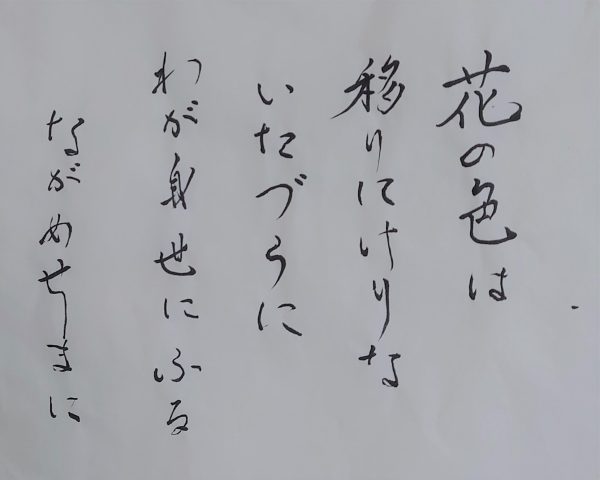 花の色は
移りにけりな
いたづらに
わが身世にふる
ながめせしまに